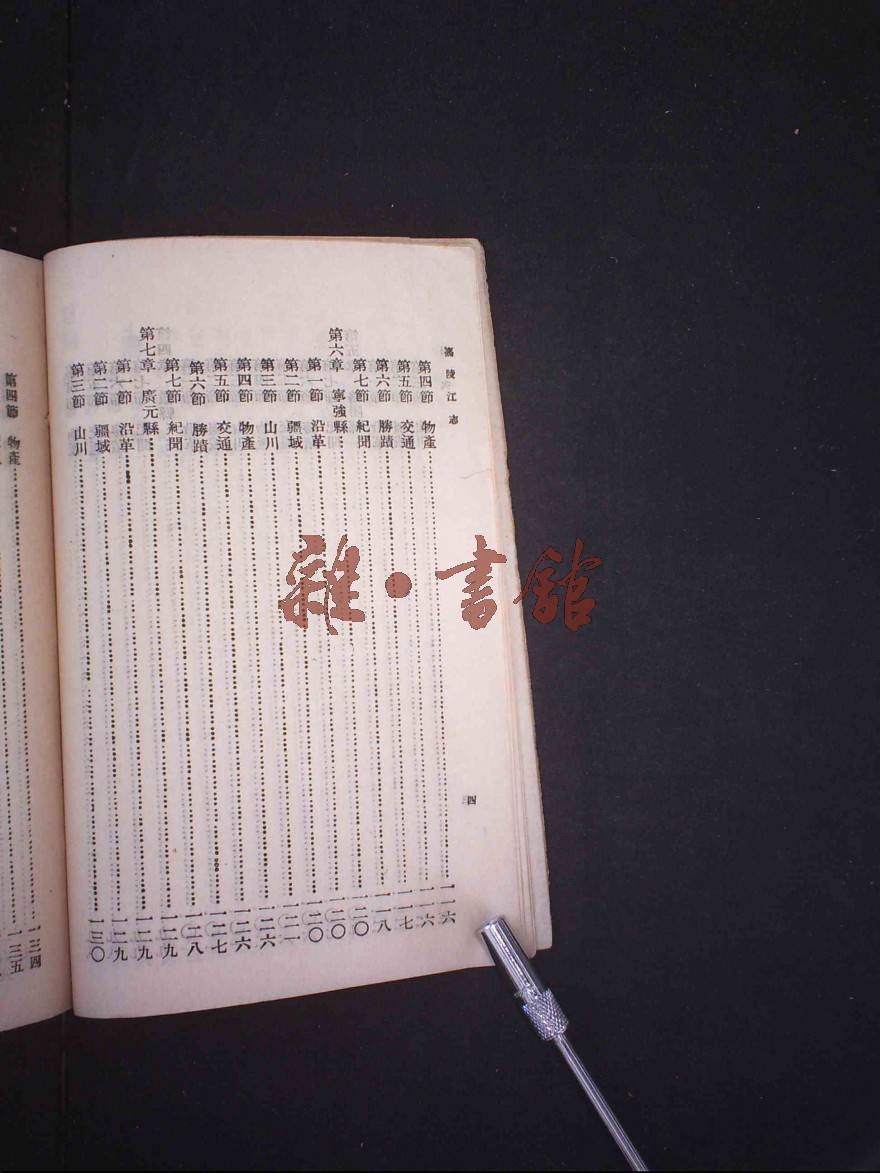 嘉陵江志
四
第四節 物產……一一六
第五節 交通……一一六
第六節 勝蹟……一一七
第七節 紀聞……一一八
第六章 寧強縣……一二〇
第一節 沿革……一二〇
第二節 疆域……一二〇
第三節 山川……一二一
第四節 物產……一二六
第五節 交通……一二六
第六節 勝蹟……一二七
第七節 紀聞……一二八
第七章 廣元縣……一二九
第一節 沿革……一二九
第二節 疆域……一二九
第三節 山川……一三〇
第四節 物產……一三四
一三五
雜·書館